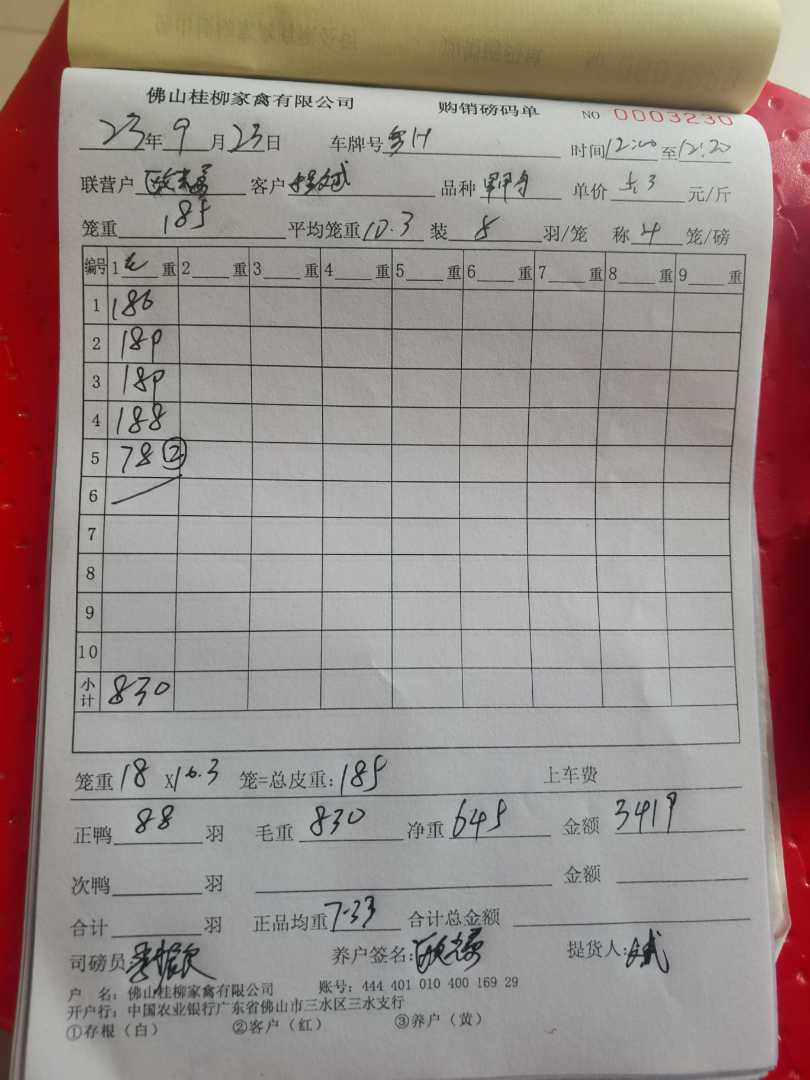 佛山桂柳家禽有限公司 购销磅码单 NO 0003230
23年9月23日 车牌号 粤H 时间12:00至12:20
联营户 客户 品种 单价5.3元/斤
笼重185 平均笼重10.3 装8羽/笼 称4笼/磅
编号 1毛重 2重 3重 4重 5重 6重 7重 8重 9重
1 186
2 189
3 189
4 188
5 78②
6
7
8
9
10
小计 830
笼重18X10.3笼=总皮重:185 上车费
正鸭88羽 毛重830 净重645 金额3419
次鸭羽 金额
合计羽 正品均重7.33 合计总金额
司磅员 养户签名: 提货人:
户 名:佛山桂柳家禽有限公司 账号:444 401 010 400 169 29
开户行:中国农业银行广东省佛山市三水区三水支行
①存根(白) ②客户(红) ③养户(黄)